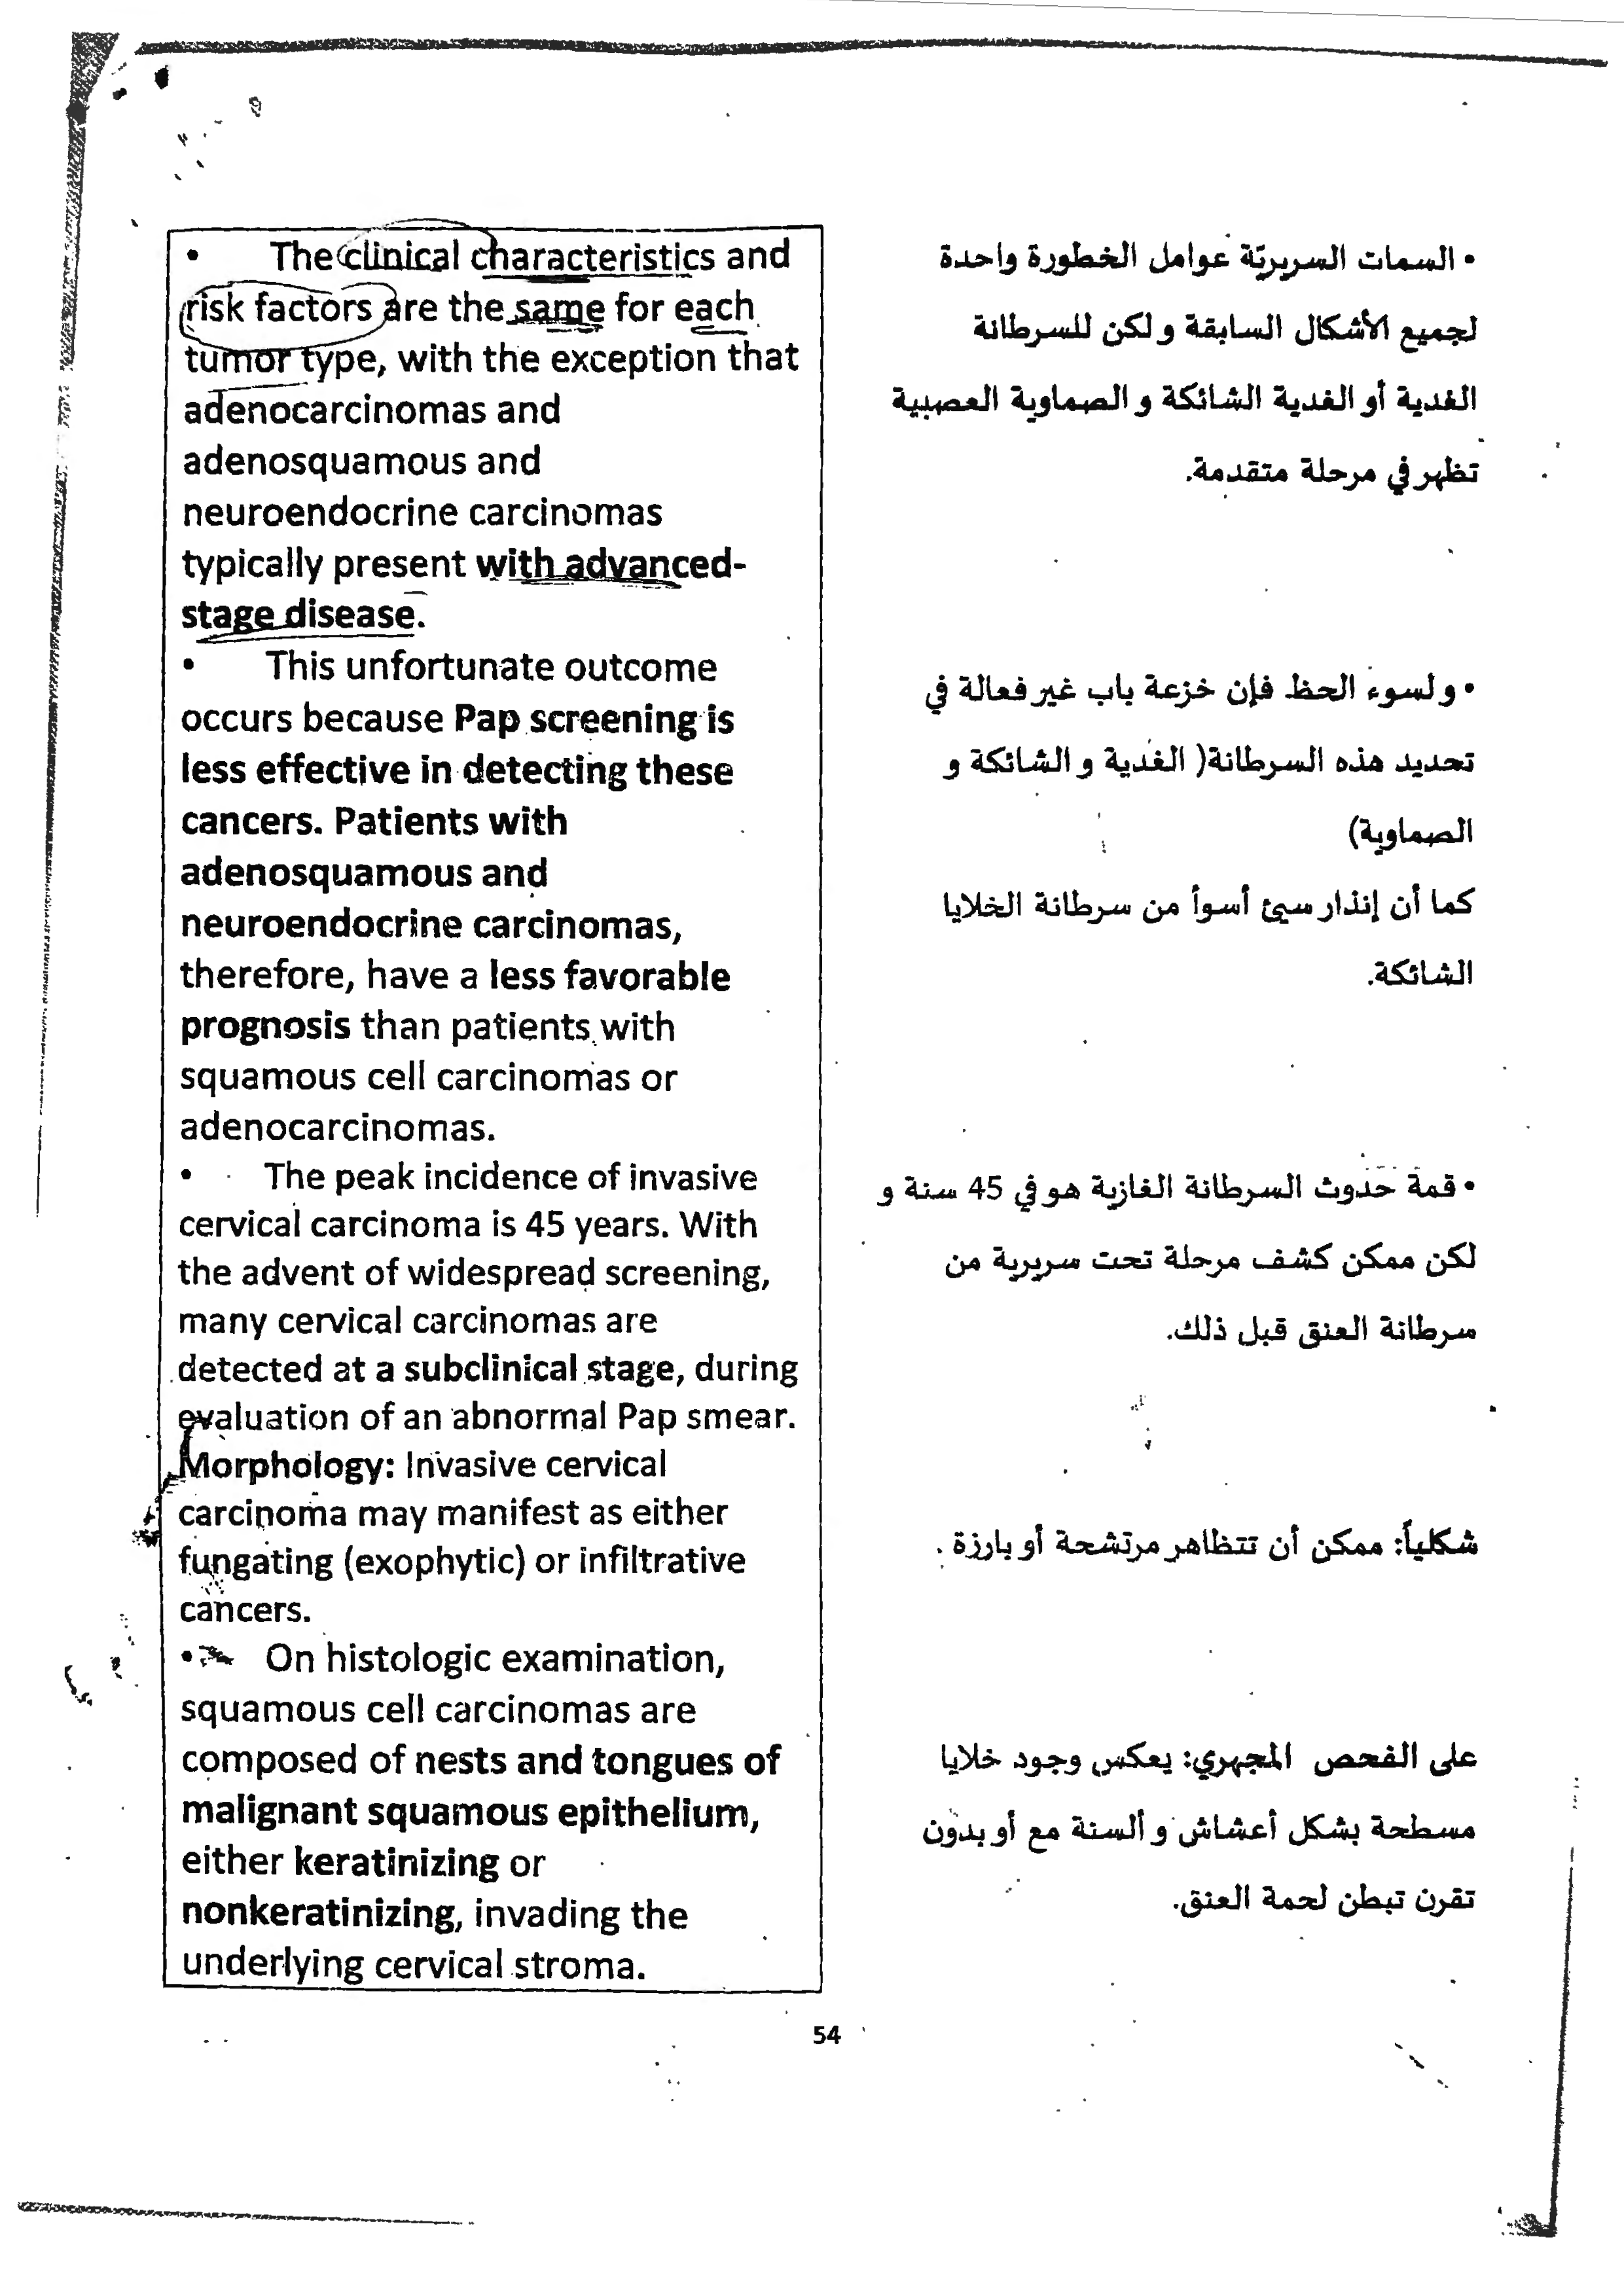 • The clinical characteristics and
risk factors are the same for each
tumor type, with the exception that
adenocarcinomas and
adenosquamous and
neuroendocrine carcinomas
typically present with advanced-
stage disease.
• This unfortunate outcome
occurs because Pap screening is
less effective in detecting these
cancers. Patients with
adenosquamous and
neuroendocrine carcinomas,
therefore, have a less favorable
prognosis than patients with
squamous cell carcinomas or
adenocarcinomas.
• The peak incidence of invasive
cervical carcinoma is 45 years. With
the advent of widespread screening,
many cervical carcinomas are
detected at a subclinical stage, during
evaluation of an abnormal Pap smear.
Morphology: Invasive cervical
carcinoma may manifest as either
fungating (exophytic) or infiltrative
cancers.
• On histologic examination,
squamous cell carcinomas are
composed of nests and tongues of
malignant squamous epithelium,
either keratinizing or
nonkeratinizing, invading the
underlying cervical stroma.
• السمات السريريّة عوامل الخطورة واحدة
لجميع الأشكال السابقة و لكن للسرطانة
الغدية أو الغدية الشائكة و الصماوية العصبية
تظهر في مرحلة متقدمة.
• و لسوء الحظ فإن خزعة باب غير فعالة في
تحديد هذه السرطانة( الغدية و الشائكة و
الصماوية)
كما أن إنذار سيئ أسوأ من سرطانة الخلايا
الشائكة.
• قمة حدوث السرطانة الغازية هو في 45 سنة و
لكن ممكن كشف مرحلة تحت سريرية من
سرطانة العنق قبل ذلك.
شكلياً: ممكن أن تتظاهر مرتشحة أو بارزة .
على الفحص المجهري: يعكس وجود خلايا
مسطحة بشكل أعشاش و ألسنة مع أو بدون
تقرن تبطن لحمة العنق.
54